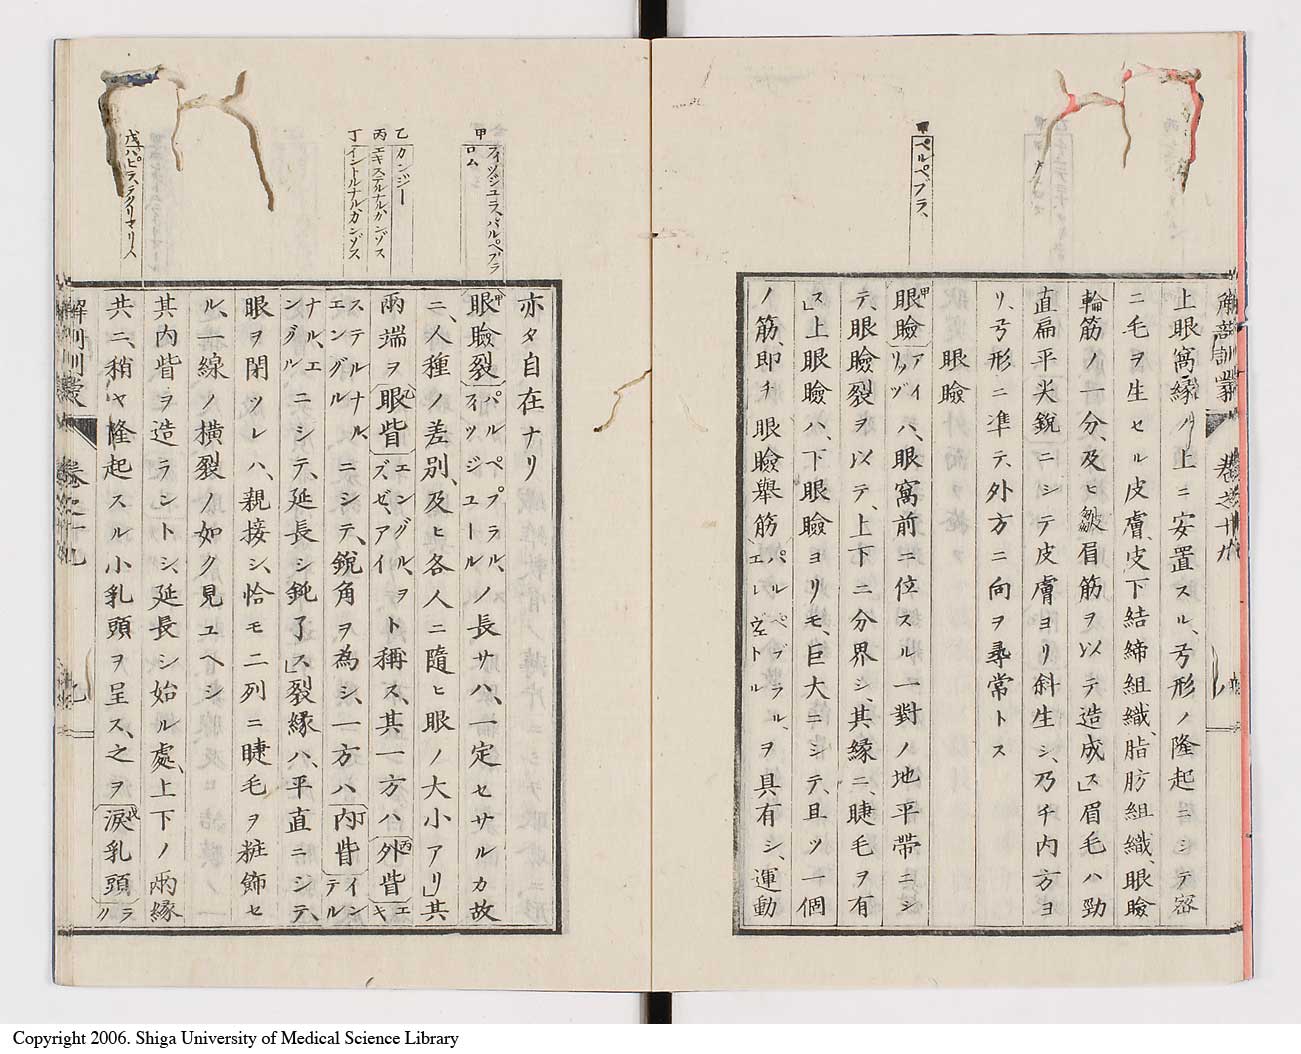 ペルペブラ、
上眼窩縁ノ上ニ安置スル、弓形ノ隆起ニシテ密
ニ毛ヲ生セル皮膚、皮下結締組織、脂肪組織、眼瞼
輪筋ノ一分、及ヒ皺眉筋ヲ以テ造成ス」眉毛ハ勁
直扁平尖鋭ニシテ皮膚ヨリ斜生シ、乃チ内方ヨ
リ、弓形ニ準テ、外方ニ向ヲ尋常トス
眼瞼
甲眼瞼アイリッヅハ、眼窩前ニ位スル一對ノ地平帯ニシ
テ、眼瞼裂ヲ以テ、上下ニ分界シ、其縁ニ、睫毛ヲ有
ス」上眼瞼ハ、下眼瞼ヨリモ、巨大ニシテ、且ツ一個
ノ筋、即チ眼瞼舉筋パルペブラル、エレヴェートルヲ具有シ、運動
甲 フィッシュラ、パルペブラロム
乙 カンジー
丙 エキステルナルカンゾス
丁 イントルナル、カンゾス
戊 パピラ、ラクリマリス
亦タ自在ナリ
甲眼瞼裂パルペブラル、フィッジユールノ長サハ、一定セサルカ故
ニ、人種ノ差別、及ヒ各人ニ隨ヒ眼ノ大小アリ」其
兩端ヲ乙眼眥エングル、ヲズゼ、アイト稱ス、其一方ハ丙外眥エキ
ステルナル、エングルニシテ、鋭角ヲ為シ、一方ハ丁内眥インテル
ナル、エングルニシテ、延長シ鈍了ス」裂縁ハ、平直ニシテ、
眼ヲ閉ツレハ、親接シ、恰モ二列ニ睫毛ヲ粧飾セ
ル、一線ノ横裂ノ如ク見ユヘシ
其内眥ヲ造ラントシ、延長シ始ル處、上下ノ兩縁
共ニ、稍ヤ隆起スル小乳頭ヲ呈ス、之ヲ戊涙乳頭ラリ
解剖訓蒙 巻之十九 九
Copyright 2006. Shiga University of Medical Science Library